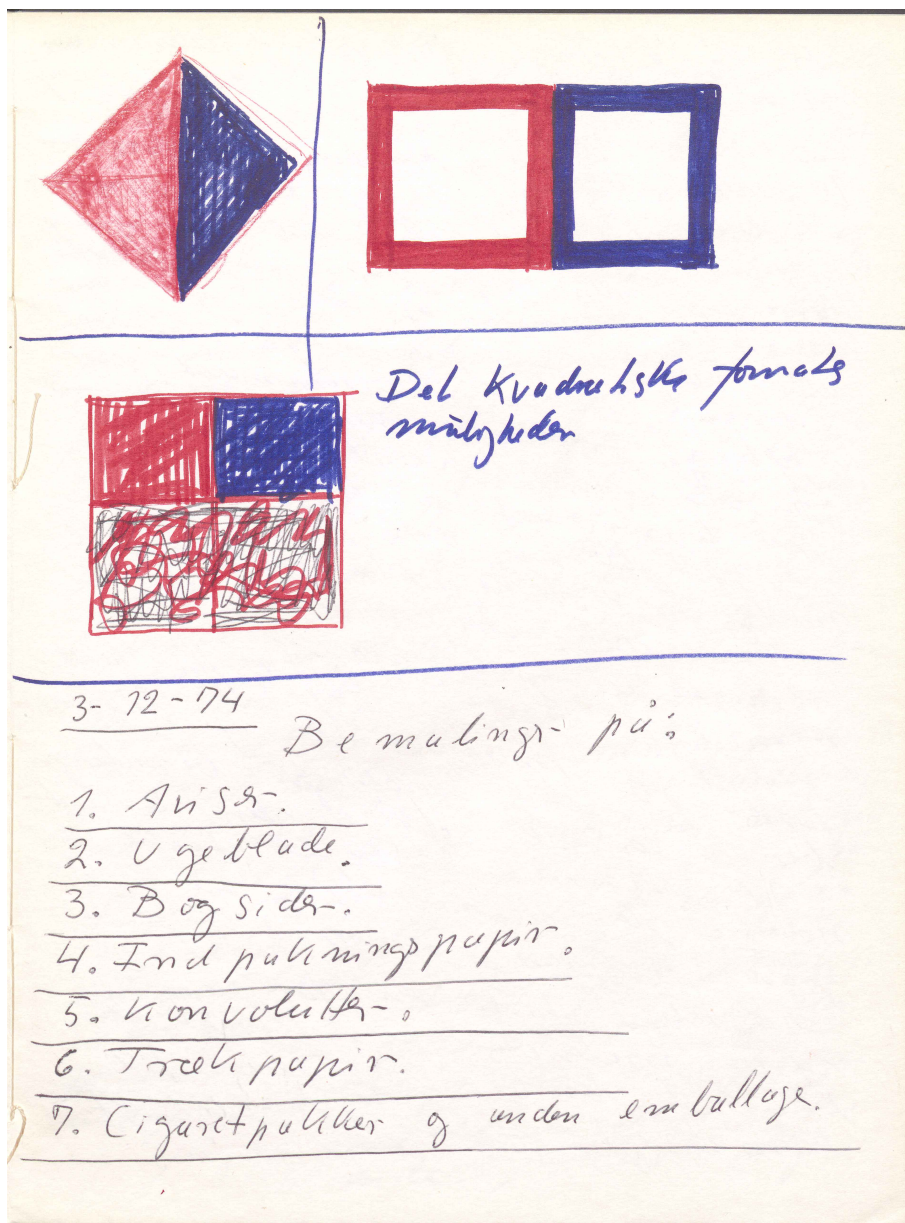 Det kvadratiske formats
muligheder
3-12-74
Bemalinger på:
1. Aviser.
2. Ugeblade.
3. Bogsider.
4. Indpakningspapir.
5. Konvolutter.
6. Trækpapir.
7. Cigaretpakker og anden emballage.